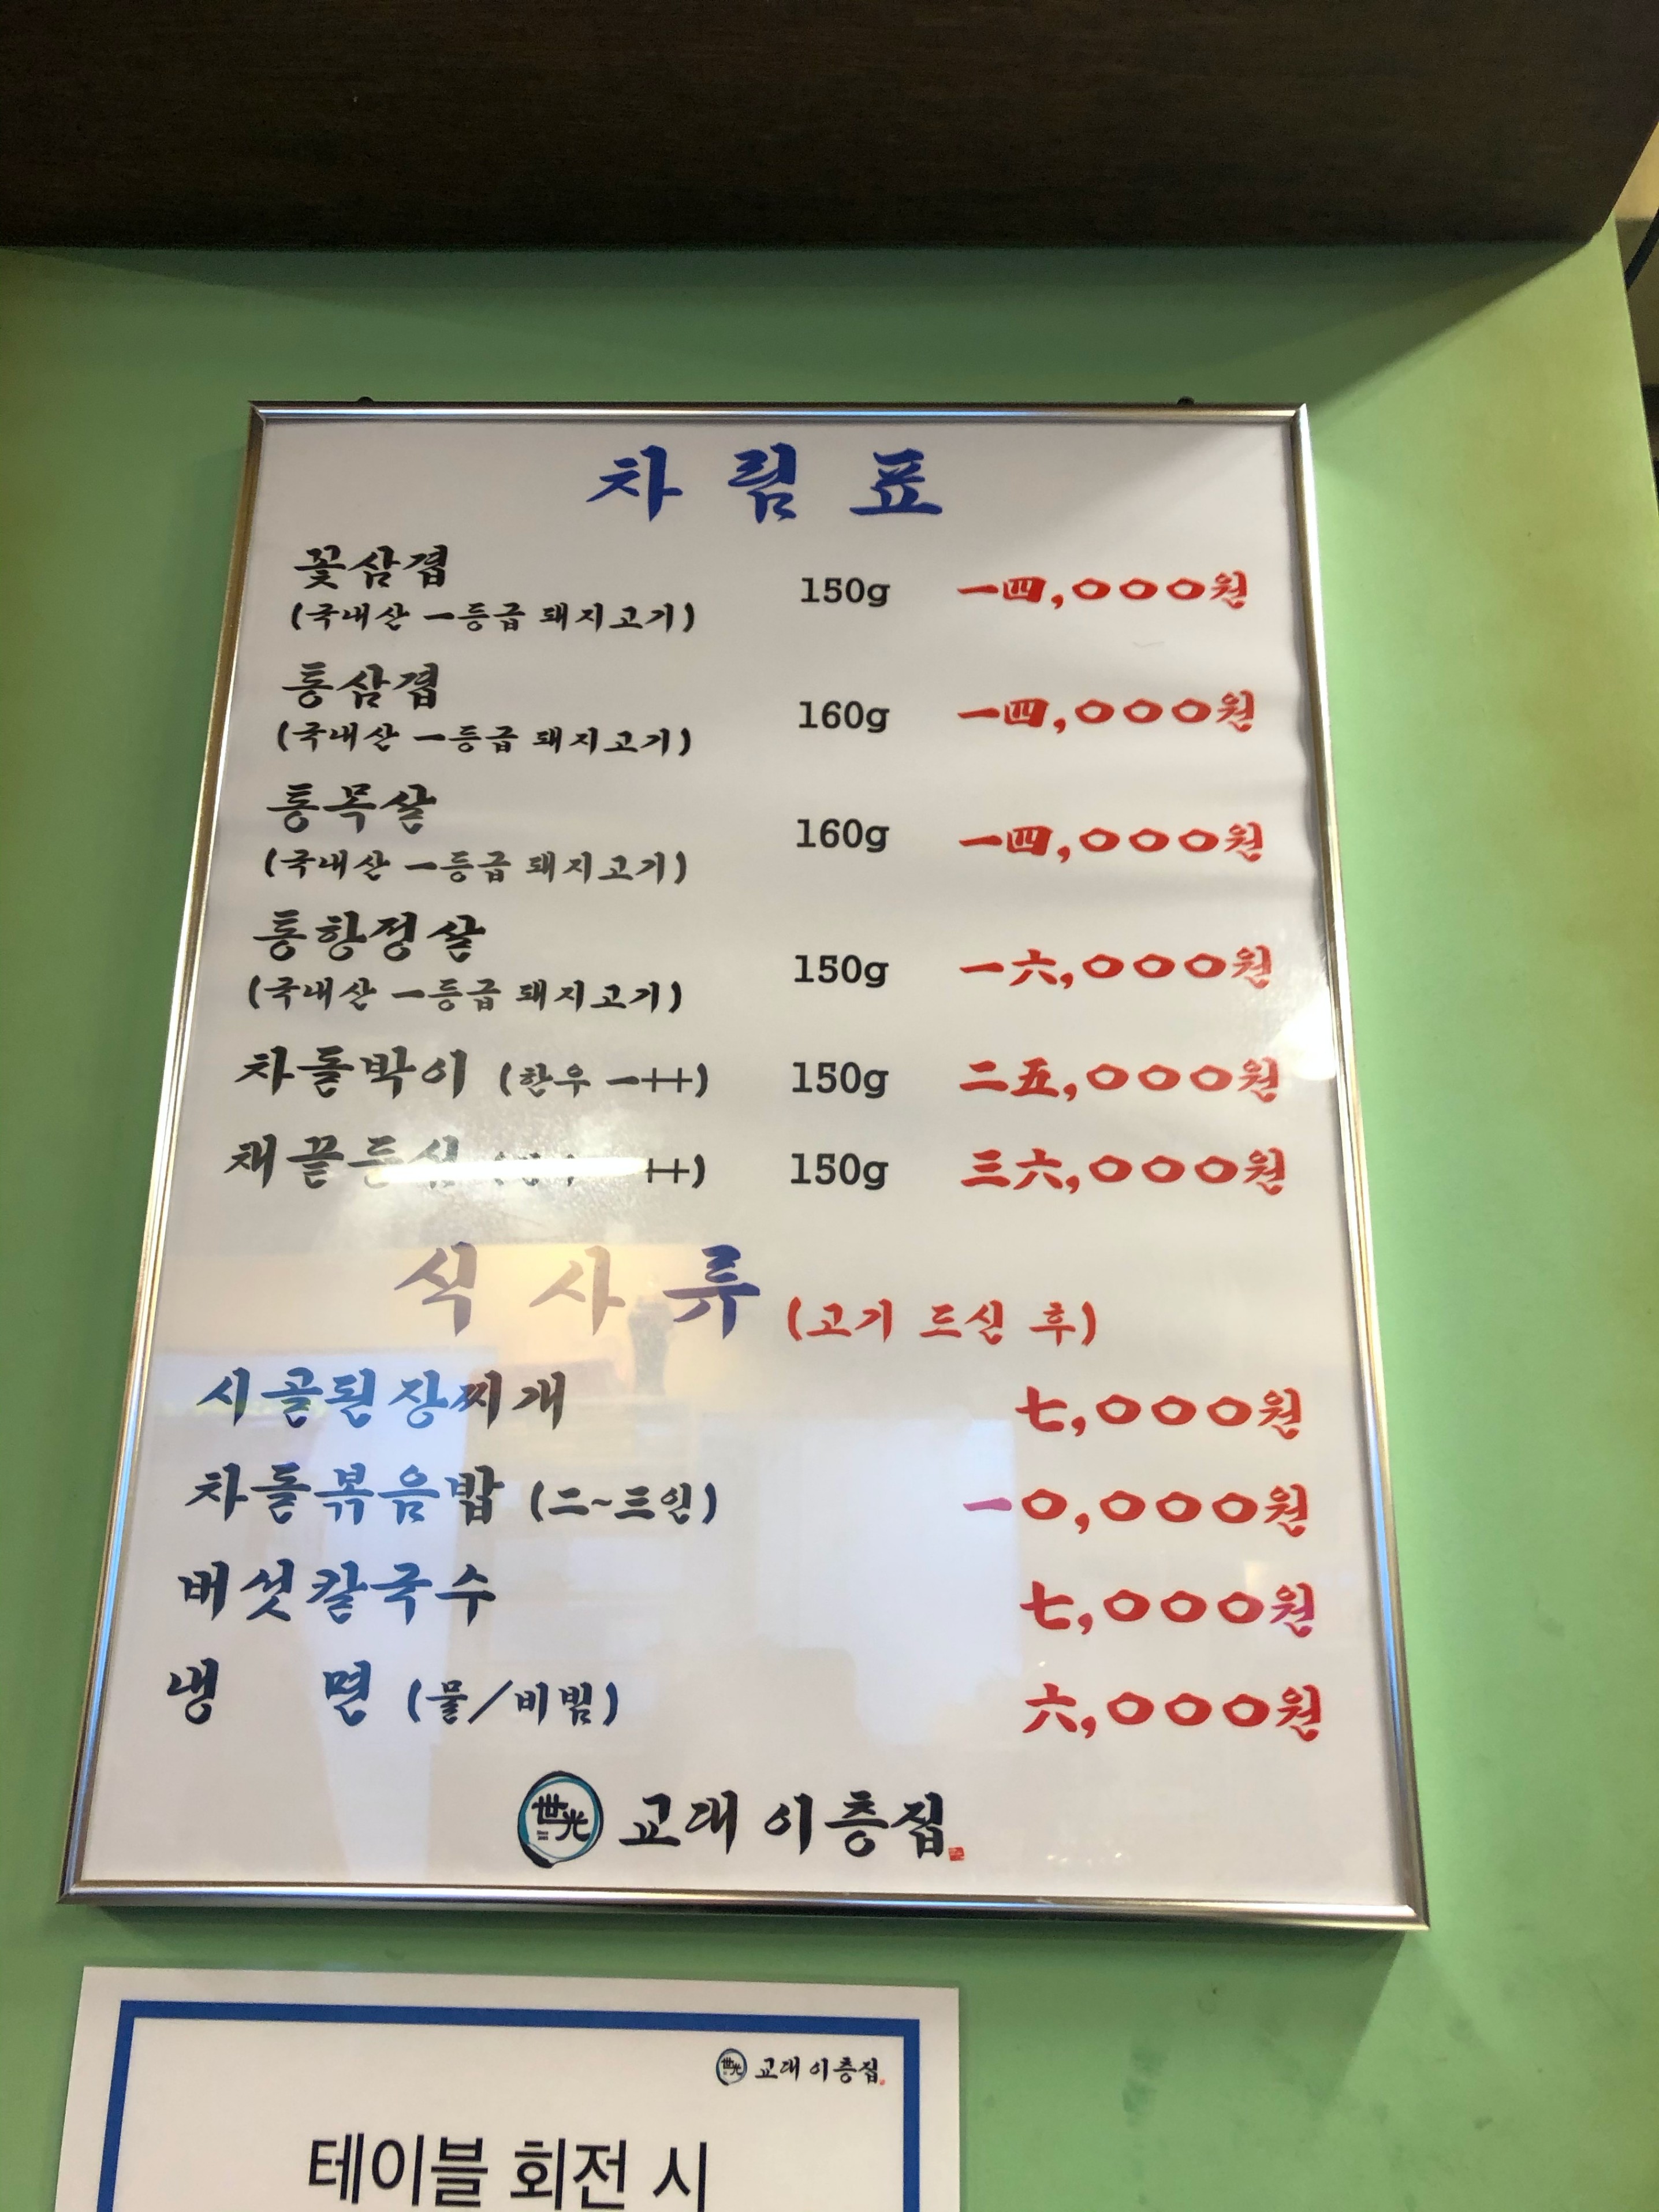 차림표
꽃삼겹 150g 一四,〇〇〇원
(국내산 一등급 돼지고기)
통삼겹 160g 一四,〇〇〇원
(국내산 一등급 돼지고기)
통목살 160g 一四,〇〇〇원
(국내산 一등급 돼지고기)
통항정살 150g 一六,〇〇〇원
(국내산 一등급 돼지고기)
차돌박이 (한우 一++) 150g 二五,〇〇〇원
채끝등심 ++) 150g 三六,〇〇〇원
식사류 (고기 드신 후)
시골된장찌개 七,〇〇〇원
차돌볶음밥 (二~三인) 一〇,〇〇〇원
버섯칼국수 七,〇〇〇원
냉 면 (물/비빔) 六,〇〇〇원
世光 교대 이층집
世光 교대 이층집
테이블 회전 시